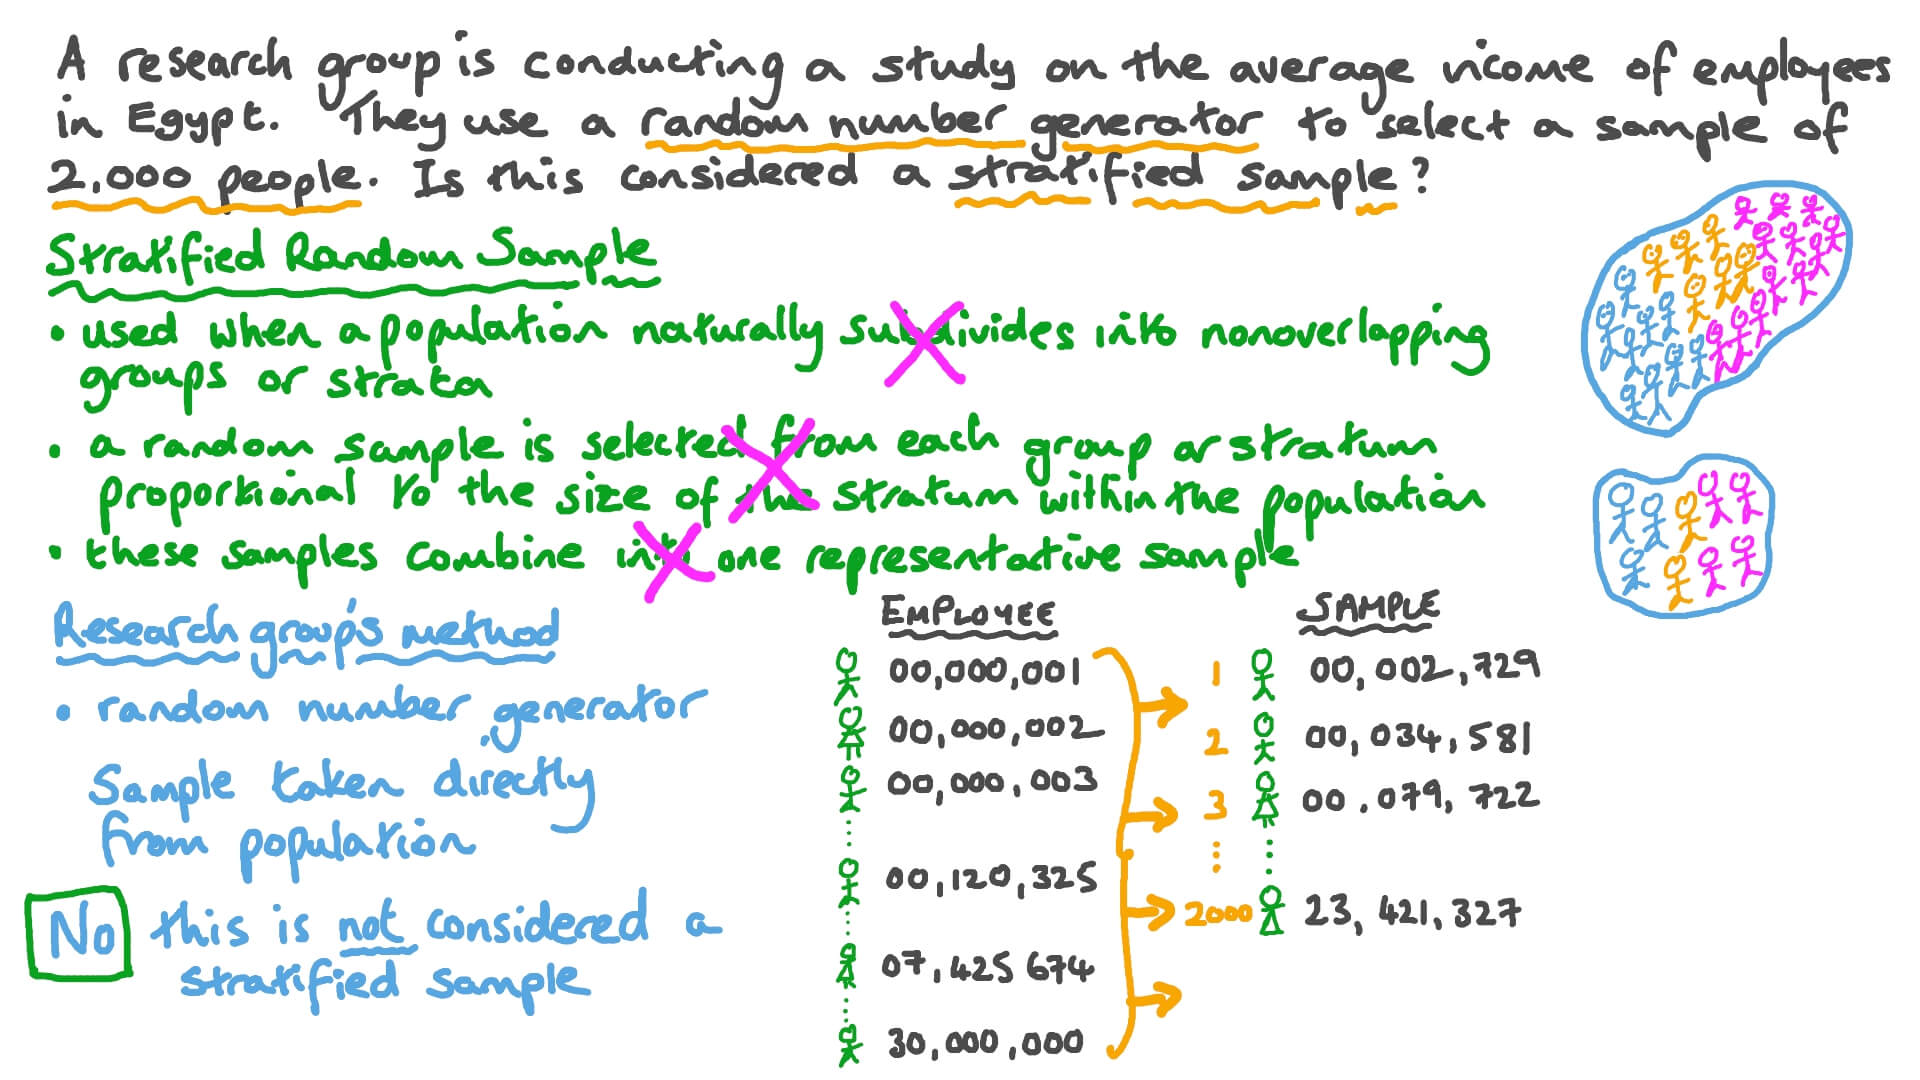 A research group is conducting a study on the average income of employees
in Egypt. They use a random number generator to select a sample of
2,000 people. Is this considered a stratified sample?
Stratified Random Sample
• used when a population naturally subdivides into nonoverlapping
groups or strata
• a random sample is selected from each group or stratum
proportional to the size of the stratum within the population
• these samples combine into one representative sample
Research group's method
• random number generator
Sample taken directly
from population
No this is not considered a
stratified sample
EMPLOYEE
00,000,001
00,000,002
00,000,003
00,120,325
07,425 674
30,000,000
SAMPLE
1 00,002,729
2 00,034,581
3 00.079,722
2000 23,421,327